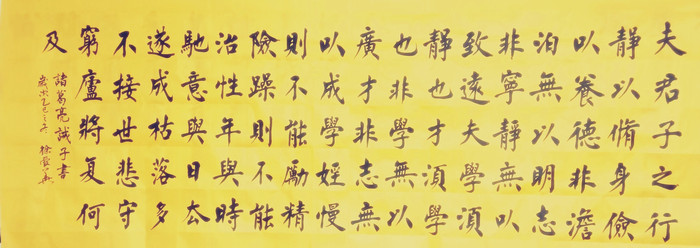 夫君子之行
静以脩身儉
以養德非澹
泊無以明志
非寧静無以
致遠夫學須
静也才須學
也非學無以
廣才非志無
以成學婬慢
則不能勵精
險躁則不能
治性年與時
馳意與日去
遂成枯落多
不接世悲守
窮廬將复何
及
諸葛亮誡子書
歲次乙巳之冬 徐